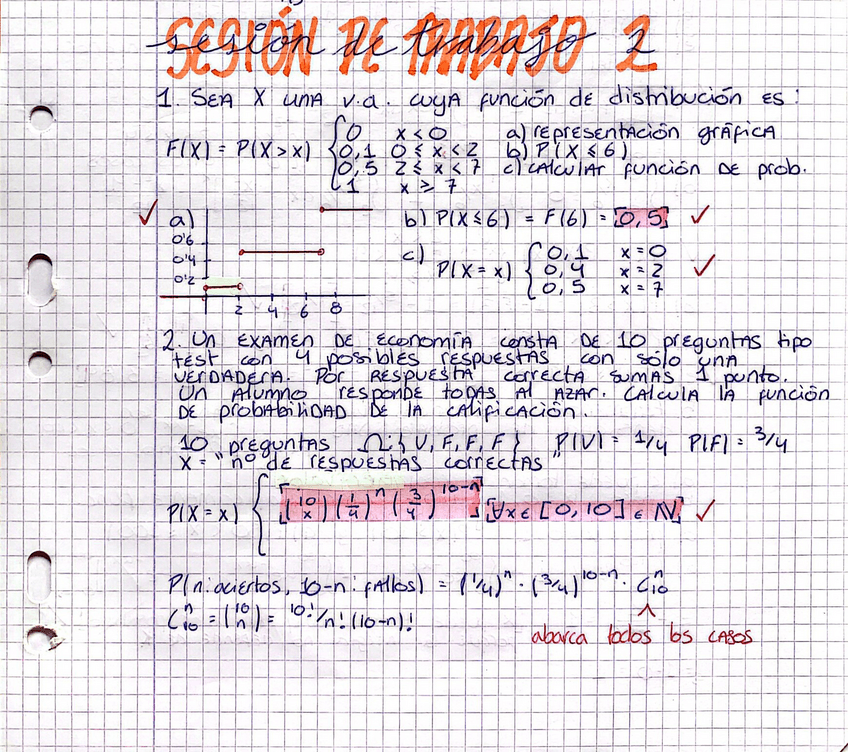 SESIÓN DE TRABAJO 2
sesión de trabajo 2
1. SEA X UNA v.a. cuya función de distribución es:
F(X) = P(X>x) { 0 x < 0 a) representación gráfica
0,1 0 ≤ x < 2 b) P(X ≤ 6)
0,5 2 ≤ x < 7 c) calcular función de prob.
1 x ≥ 7
✓ a) b) P(X≤6) = F(6) = [0,5] ✓
0'6
0'4
0'2
2 4 6 8
c) P(X=x) { 0,1 x=0
0,4 x=2 ✓
0,5 x=7
2. Un examen de economía consta de 10 preguntas tipo
test con 4 posibles respuestas con sólo una
verdadera. Por respuesta correcta sumas 1 punto.
Un alumno responde todas al azar. Calcula la función
de probabilidad de la calificación.
10 preguntas Ω:{V, F, F, F} P(V) = 1/4 P(F) = 3/4
X = "nº de respuestas correctas"
P(X=x) { [(10 x) (1/4)^n (3/4)^10-n] [∀x ∈ [0,10] ∈ N] ✓
P(n: aciertos, 10-n: fallos) = (1/4)^n · (3/4)^10-n · C_10^n
C_10^n = (10 n) = 10!/n!(10-n)!
abarca todos los casos